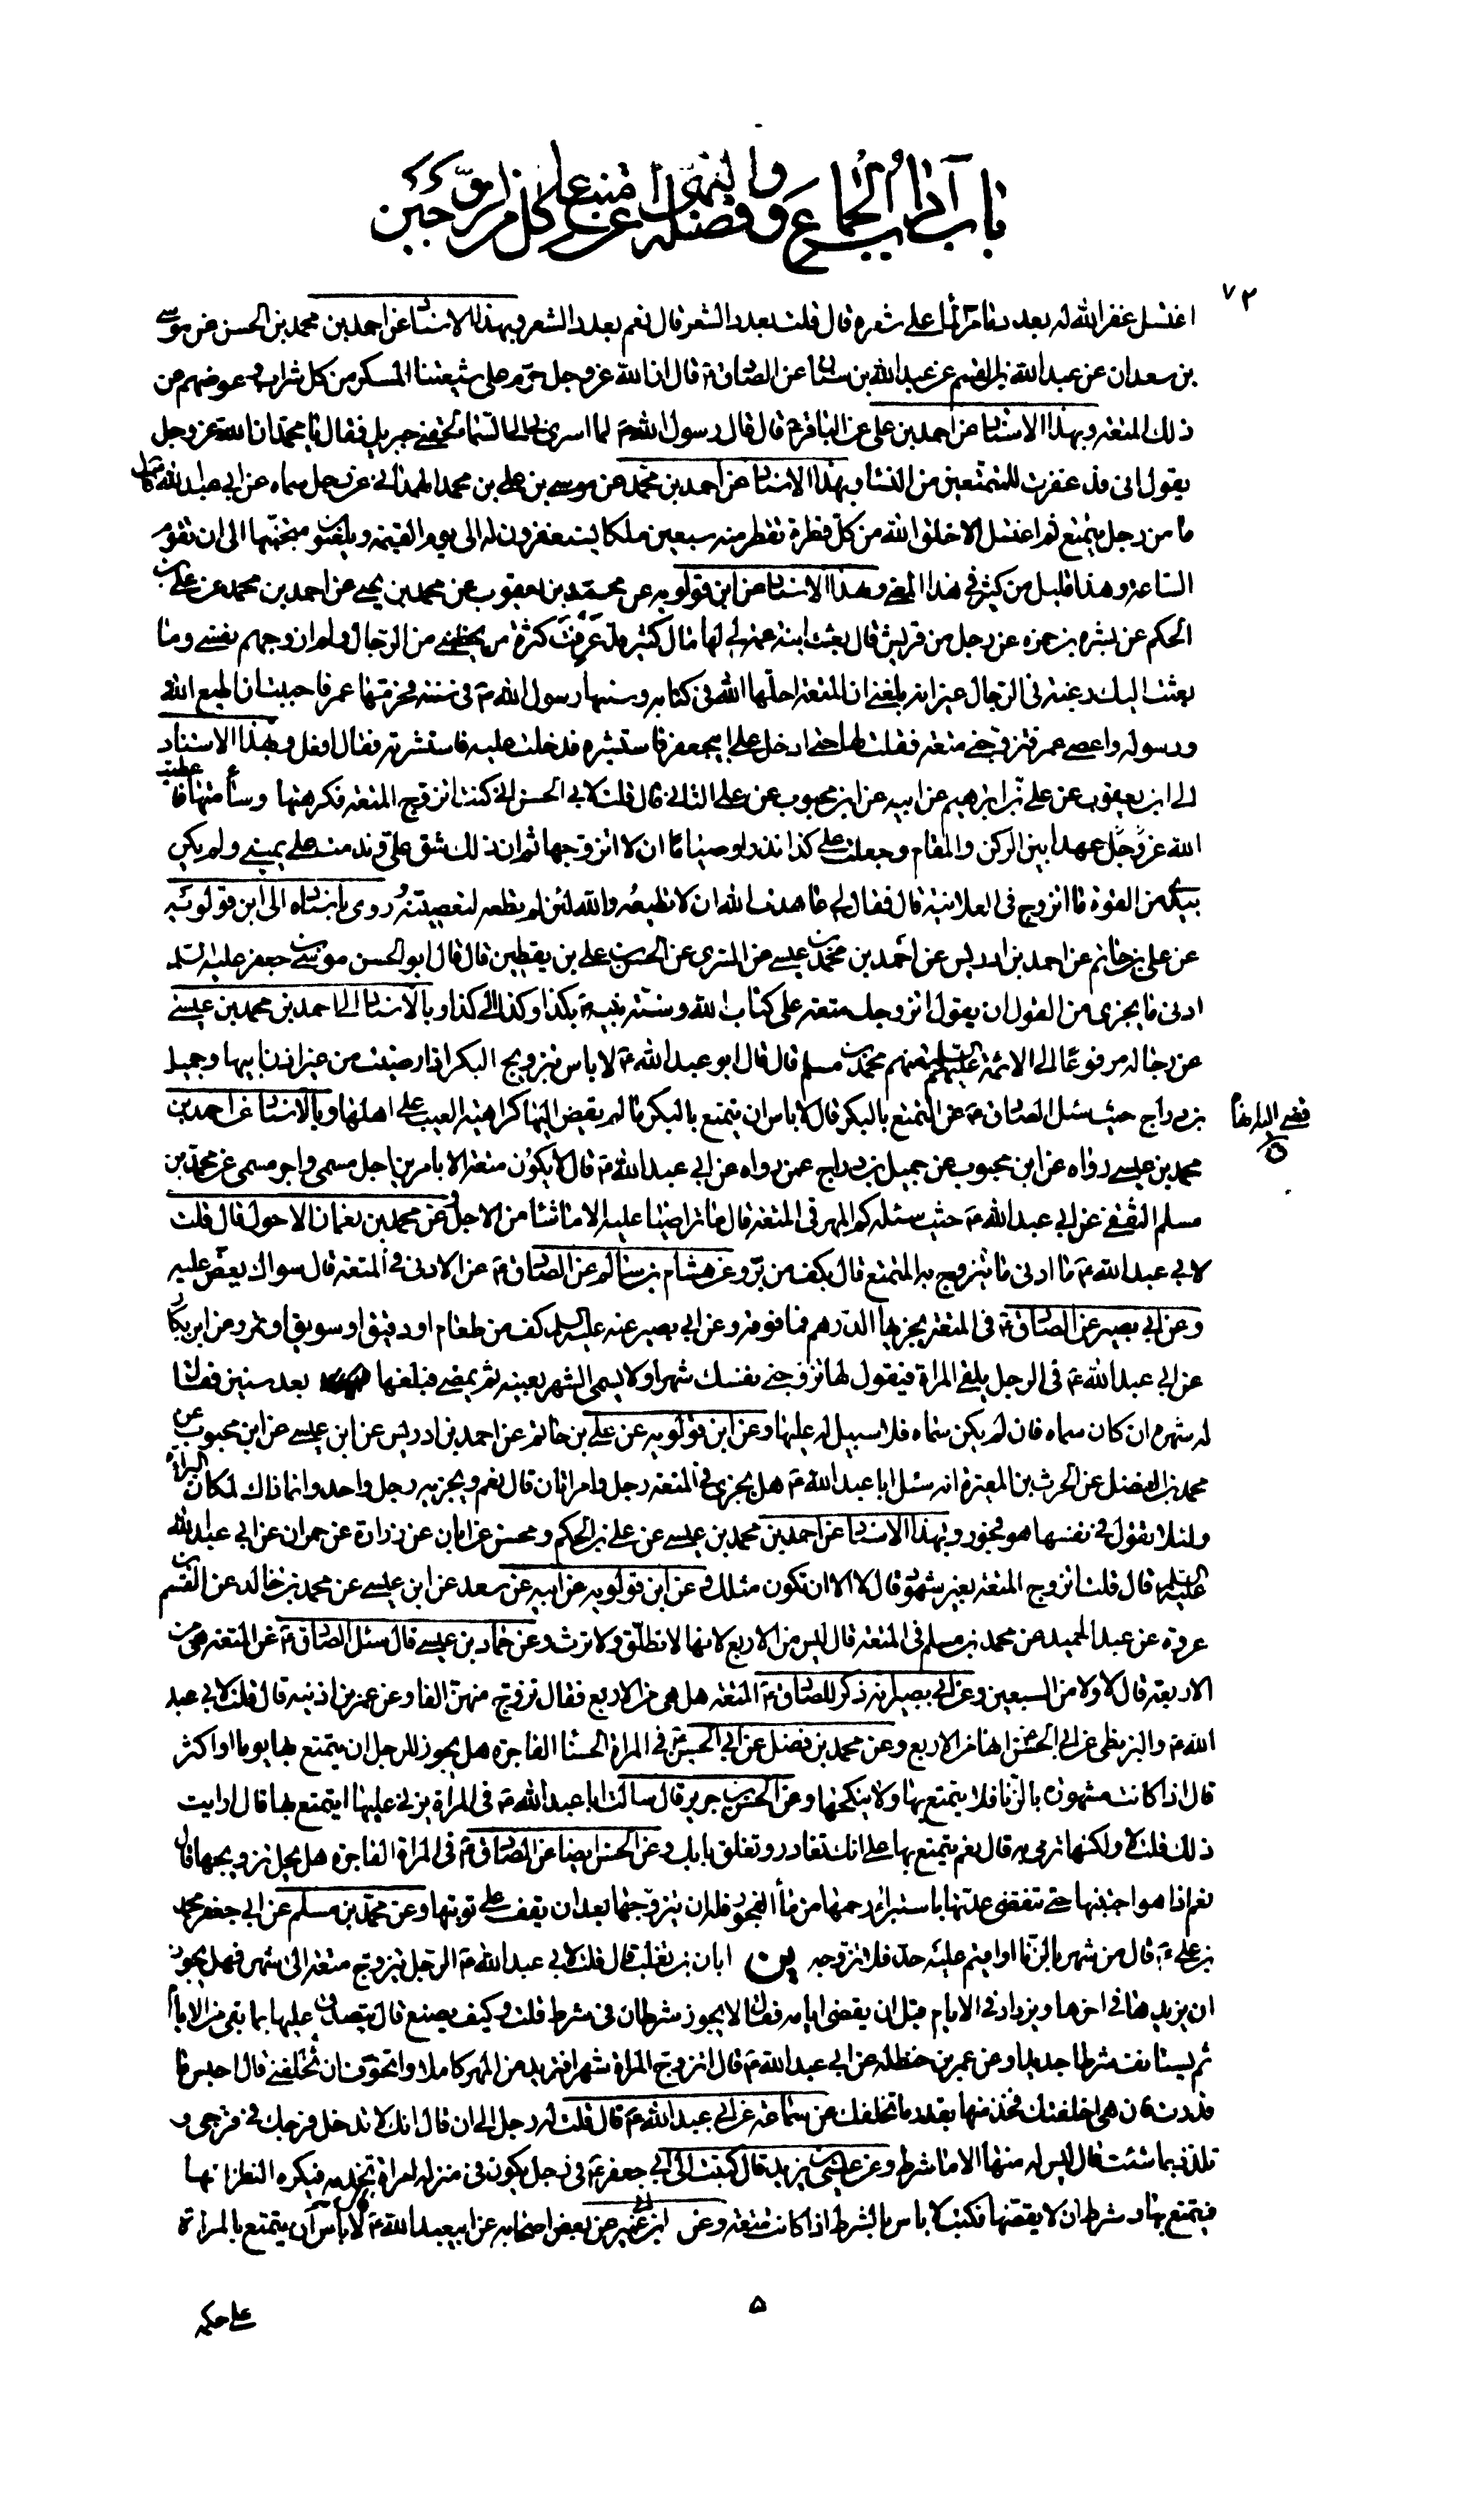 باب آداب الجماع وفضله والنهي عن امتناع كل من الزوجين
٧٢
اغتسل غفر الله له بعدد ما مر الماء على شعره قال قلت بعدد الشعر قال نعم بعدد الشعر وبهذا الاسناد عن احمد بن محمد بن الحسن عن موسى
بن سعدان عن عبد الله بن القسم عن عبد الله بن سنان عن الصادق ع قال ان الله عز وجل حرم على شيعتنا المسكر من كل شراب وعوضهم من
ذلك المتعة وبهذا الاسناد عن احمد بن على عن الباقر ع قال قال رسول الله ص لما اسرى بى الى السماء لحقنى جبريل فقال يا محمد ان الله عز وجل
يقول انى قد غفرت للمتمتعين من النساء وبهذا الاسناد عن احمد بن محمد عن موسى بن على بن محمد الهمدانى عن رجل سماه عن ابى عبد الله ع قال
ما من رجل يتمتع ثم اغتسل الا خلق الله من كل قطرة تقطر منه سبعين ملكا يستغفرون له الى يوم القيمة ويلعنون متجنبها الى ان تقوم
الساعة وهذا قليل من كثير فى هذا المعنى وبهذا الاسناد عن ابن قولويه عن محمد بن يعقوب عن محمد بن يحيى عن احمد بن محمد عن على بن
الحكم عن بشر بن حمزه عن رجل من قريش قال بعثت ابنة عمة لى لها مال كثير قد عرفت كثرة من يخطبنى من الرجال ولم ازوجهم نفسى وما
بعثت اليك رغبة فى الرجال غير انه بلغنى ان المتعة احلها الله فى كتابه وسنها رسول الله ص فى سنته فحرمها عمر فاحببت ان اطيع الله
ورسوله واعصى عمر فتزوجنى متعة فقلت لها حتى ادخل على ابيجعفر فاستشيره فدخلت عليه فاستشرته فقال افعل وبهذا الاسناد
الى ابن يعقوب عن على بن ابرهيم عن ابيه عن ابن محبوب عن على السائى قال قلت لابى الحسن انى كنت اتزوج المتعة فكرهتها وتشأمت منها فاعطيت
الله عز وجل عهدا بين الركن والمقام وجعلت على كذا نذرا وصياما ان لا اتزوجها ثم ان ذلك شق على وندمت على يمينى ولم يكن
بيدى من القوة ما اتزوج فى العلانية قال فقال لى عاهدت الله ان لا تطيعه والله لئن لم تطعه لتعصينه روى باسناده الى ابن قولويه
عن على بن حاتم عن احمد بن ادريس عن احمد بن محمد بن عيسى عن المترى عن الحسن بن على بن يقطين قال قال ابو الحسن موسى بن جعفر عليه السلم
ادنى ما يجزى من القول ان يقول اتزوجك متعة على كتاب الله وسنة نبيه ص بكذا وكذا الى كذا وبالاسناد الى احمد بن محمد بن عيسى
عن رجاله مرفوعا الى الائمة عليهم السلم منهم محمد بن مسلم قال قال ابو عبد الله ع لا باس بتزويج البكر اذا رضيت من غير اذن ابيها وجميل
بن دراج حيث سئل الصادق ع عن التمتع بالبكر قال لا باس ان يتمتع بالبكر ما لم يفض اليها كراهية العيب على اهلها وبالاسناد عن احمد بن
محمد بن عيسى رواه عن ابن محبوب عن جميل بن دراج عمن رواه عن ابى عبد الله ع قال لا يكون متعة الا بامرين اجل مسمى واجر مسمى عن محمد بن
مسلم الثقفى عن ابى عبد الله ع حيث سئله كم المهر فى المتعة قال ما تراضيا عليه الى ما شاءا من الاجل وعن محمد بن نعمان الاحول قال قلت
لابى عبد الله ع ما ادنى ما يتزوج به المتمتع قال بكف من بر وعن هشام بن سالم عن الصادق ع عن الادنى فى المتعة قال سواك يعض عليه
وعن ابى بصير عن الصادق ع فى المتعة يجزيها الدرهم فما فوقه وعن ابى بصير عنه عليه السلم كف من طعام او دقيق او سويق او تمر وعن ابن بكار
عن ابى عبد الله ع فى الرجل يلقى المراة فيقول لها زوجنى نفسك شهرا ولا يسمى الشهر بعينه ثم يمضى فيلقاها بعد سنين فقال
له شهره ان كان سماه فان لم يكن سماه فلا سبيل له عليها وعن ابن قولويه عن على بن حاتم عن احمد بن ادريس عن ابن عيسى عن ابن محبوب عن
محمد بن الفضل عن الحرث بن المغيرة انه سئل ابا عبد الله ع هل يجزى فى المتعة رجل وامراتان قال نعم ويجزيه رجل واحد وانما ذاك لمكان البراءة
ولئلا تقول فى نفسها هو فجور وبهذا الاسناد عن احمد بن محمد بن عيسى عن على بن الحكم ومحسن عن ابان عن زرارة عن حمران عن ابى عبد الله
عليه السلم قال قلت اتزوج المتعة بغير شهود قال لا الا ان تكون مثلك وعن ابن قولويه عن ابيه عن سعد عن ابن عيسى عن محمد بن خالد عن القسم بن
عروة عن عبد الحميد عن محمد بن مسلم فى المتعة قال ليس من الاربع لانها لا تطلق ولا ترث وعن حماد بن عيسى قال سئل الصادق ع عن المتعة هى من
الاربعة قال لا ولا من السبعين وعن ابى بصير انه ذكر للصادق ع المتعة هل هى من الاربع فقال تزوج منهن الفا وعن عمر بن اذنيه قال قلت لابى عبد
الله ع والبزنطى عن ابى الحسن ع انها من الاربع وعن محمد بن فضل عن ابى الحسن ع فى المراة الحسنا الفاجرة هل يجوز للرجل ان يتمتع بها يوما او اكثر
قال اذا كانت مشهورة بالزنا فلا يتمتع بها ولا ينكحها وعن الحسن بن جرير قال سالت ابا عبد الله ع فى المراة يزنى عليها ايتمتع بها قال رايت
ذلك قلت لا ولكنها ترمى به قال نعم يتمتع بها على انك تغادر وتغلق بابك وعن الحسن ايضا عن الصادق ع فى المراة الفاجره هل يحل تزويجها قال
نعم اذا هو اجتنبها حتى تنقضى عدتها باستبراء رحمها من ماء الفجور فله ان يتزوجها بعد ان يقف على توبتها وعن محمد بن مسلم عن ابى جعفر محمد
بن على ع قال من شهر بالزنا او اقيم عليه حد فلا تزوجه ين ابان بن تغلب قال قلت لابى عبد الله ع الرجل يتزوج متعة الى شهر فهل يجوز
ان يزيدها فى اجرها ويزداد فى الايام قبل ان يقضى ايامه فقال لا يجوز شرطان فى شرط قلت وكيف يصنع قال يتصدق عليها بما بقى من الايام
ثم يستانف شرطا جديدا وعن عمر بن حنظلة عن ابى عبد الله ع قال اتزوج المراة شهرا فتريد منى المهر كاملا واتخوف ان تخلفنى قال احبس ما
قدرت فان هى اخلفتك فخذ منها بقدر ما تخلفك عن سماعة عن ابى عبد الله ع قال قلت له رجل الى ان قال انك لا تدخل فرجك فى فرجى و
تلذذ بما شئت قال ليس له منها الا ما شرط وعن عيسى بن يزيد قال كتبت الى ابى جعفر ع فى رجل يكون فى منزله امراة تخدمه فيكره النظر اليها
فيتمتع بها وشرط ان لا يفتضها فكتب لا باس بالشرط اذا كانت متعة وعن ابن ابى عمير عن بعض اصحابه عن ابيعبد الله ع لا باس ان يتمتع بالمراة
على حكمه
۵